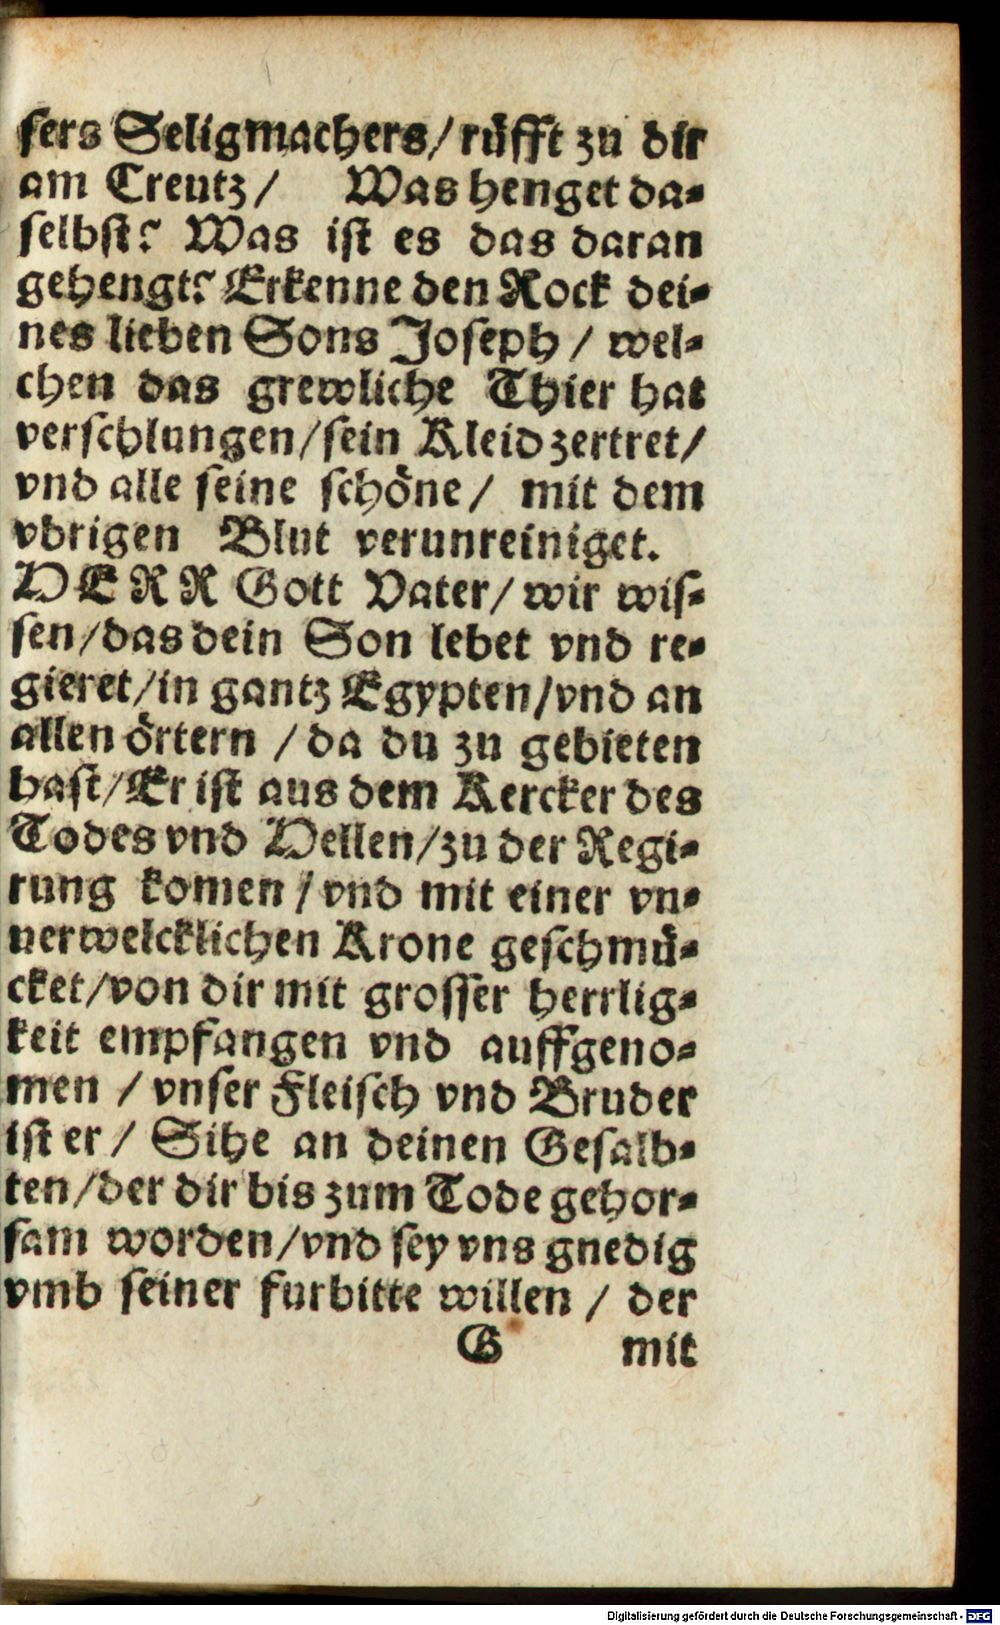 sers Seligmachers/ rüfft zu dir
am Creutz/ Was henget da-
selbst? Was ist es das daran
gehengt? Erkenne den Rock dei-
nes lieben Sons Joseph / wel-
chen das grewliche Thier hat
verschlungen/sein Kleid zertret/
vnd alle seine schöne/ mit dem
vbrigen Blut verunreiniget.
HERR Gott Vater/ wir wis-
sen/das dein Son lebet vnd re-
gieret/in gantz Egypten/vnd an
allen örtern /da du zu gebieten
hast/Er ist aus dem Kercker des
Todes vnd Hellen/zu der Regi-
rung komen /vnd mit einer vn-
uerwelcklichen Krone geschmü-
cket/von dir mit grosser herrlig-
keit empfangen vnd auffgeno-
men / vnser Fleisch vnd Bruder
ist er/ Sihe an deinen Gesalb-
ten/der dir bis zum Tode gehor-
sam worden/vnd sey vns gnedig
vmb seiner furbitte willen / der
G mit
Digitalisierung gefördert durch die Deutsche Forschungsgemeinschaft - DFG